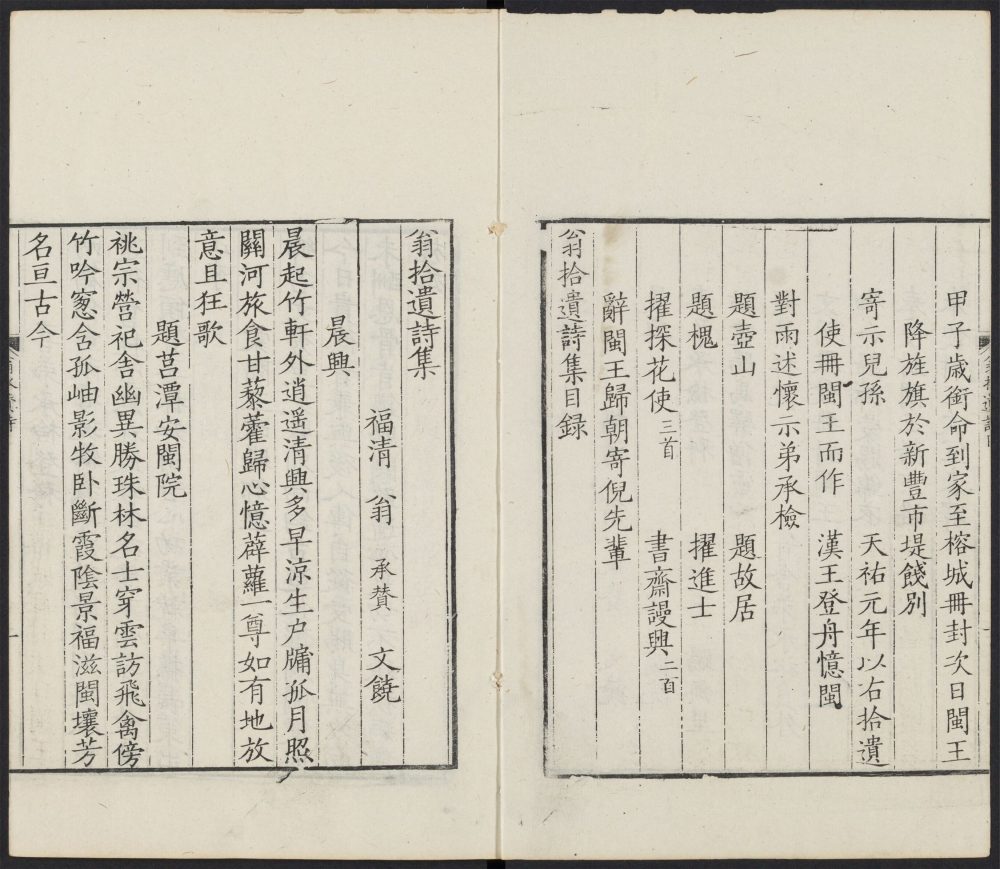 甲子歲銜命到家至榕城冊封次日閩王
降旌旗於新豐市堤餞別
寄示兒孫　天祐元年以右拾遺
使冊閩王而作　漢王登舟憶閩
對雨述懷示弟承檢
題壺山　題故居
題槐　擢進士
擢探花使三首　書齋謾興二首
辭閩王歸朝寄倪先輩
翁拾遺詩集目録
翁拾遺詩集
福清　翁　承贊　文饒
晨興
晨起竹軒外逍遥清興多早涼生户牖孤月照
關河旅食甘藜藿歸心憶薜蘿一尊如有地放
意且狂歌
題莒潭安閩院
祧宗營祀舍幽異勝珠林名士穿雲訪飛禽傍
竹吟窻含孤岫影牧卧斷霞陰景福滋閩壤芳
名亘古今